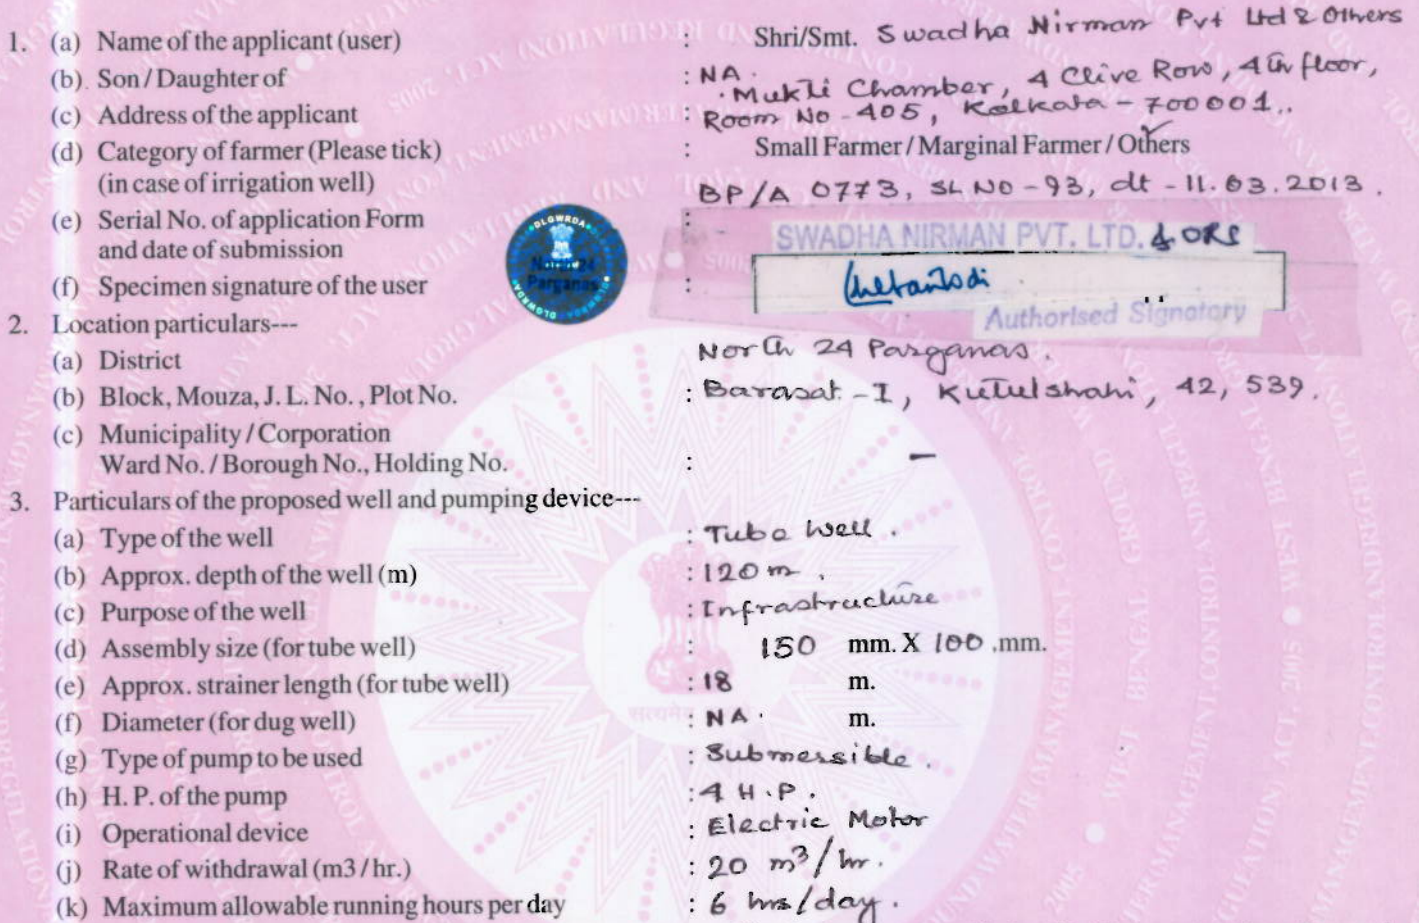 1. (a) Name of the applicant (user) : Shri/Smt. Swadha Nirman Pvt Ltd & Others
(b) Son / Daughter of : NA.
(c) Address of the applicant : Mukti Chamber, 4 Clive Row, 4th floor,
Room No - 405, Kolkata - 700001.
(d) Category of farmer (Please tick) : Small Farmer / Marginal Farmer / Others
(in case of irrigation well)
(e) Serial No. of application Form : BP/A 0773, SL NO - 93, dt - 11.03.2013.
and date of submission
SWADHA NIRMAN PVT. LTD. & ORS
DLGWRDA
North 24
Parganas
DLGWRDA
(f) Specimen signature of the user :
Authorised Signatory
2. Location particulars---
(a) District North 24 Parganas.
(b) Block, Mouza, J. L. No. , Plot No. : Barasat - I, Kutulshahi, 42, 539.
(c) Municipality / Corporation
Ward No. / Borough No., Holding No. : –
3. Particulars of the proposed well and pumping device---
(a) Type of the well : Tube Well.
(b) Approx. depth of the well (m) : 120 m.
(c) Purpose of the well : Infrastructure
(d) Assembly size (for tube well) : 150 mm. X 100 .mm.
(e) Approx. strainer length (for tube well) : 18 m.
(f) Diameter (for dug well) : NA. m.
(g) Type of pump to be used : Submersible.
(h) H. P. of the pump : 4 H.P.
(i) Operational device : Electric Motor
(j) Rate of withdrawal (m3 / hr.) : 20 m³/hr.
(k) Maximum allowable running hours per day : 6 hrs/day.